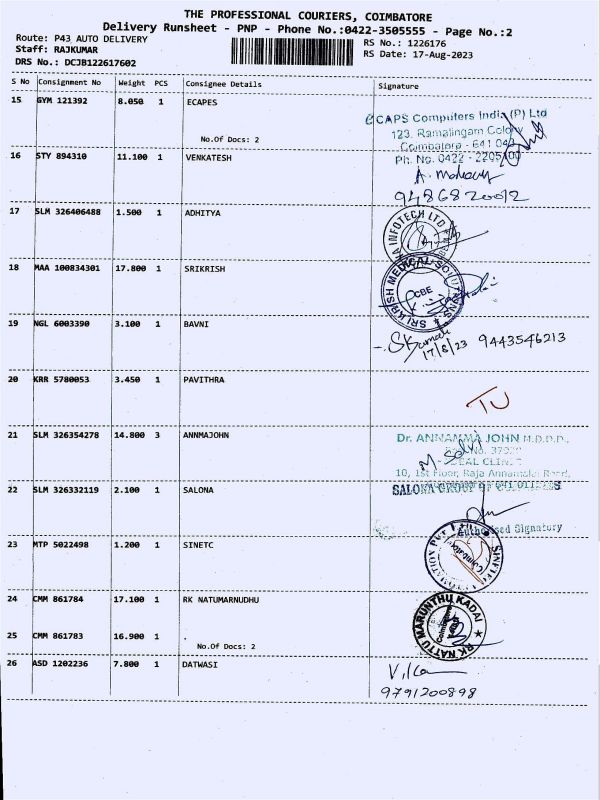 THE PROFESSIONAL COURIERS, COIMBATORE
Delivery Runsheet - PNP - Phone No.:0422-3505555 - Page No.:2
Route: P43 AUTO DELIVERY
RS No.: 1226176
Staff: RAJKUMAR
RS Date: 17-Aug-2023
DRS No.: DCJB122617602
S No Consignment No Weight PCS Consignee Details Signature
15 GYM 121392 8.050 1 ECAPES
eCAPS Computers India (P) Ltd
123, Ramalingam Colony
No.Of Docs: 2
Coimbatore - 641 043
16 STY 894310 11.100 1 VENKATESH
Ph. No. 0422 - 2205400
A. mohan
17 SLM 326406488 1.500 1 ADHITYA
INFOTECH LTD
18 MAA 100834301 17.800 1 SRIKRISH
SRI KRISH MEDICAL SOLUTIONS
CBE
19 NGL 6003390 3.100 1 BAVNI
17/8/23 9443546213
20 KRR 5780053 3.450 1 PAVITHRA
TU
21 SLM 326354278 14.800 3 ANNMAJOHN
Dr. ANNAMMA JOHN M.D.D.D.,
M. Selvi
10, 1st Floor, Raja Annamalai Road,
22 SLM 326332119 2.100 1 SALONA
SALONA GROUP OF
Authorised Signatory
23 MTP 5022498 1.200 1 SINETC
SINETC
Coimbatore
24 CMM 861784 17.100 1 RK NATUMARNUDHU
RK NATTU MARUNTHU KADAI
25 CMM 861783 16.900 1 .
No.Of Docs: 2
26 ASD 1202236 7.800 1 DATWASI
9791200898